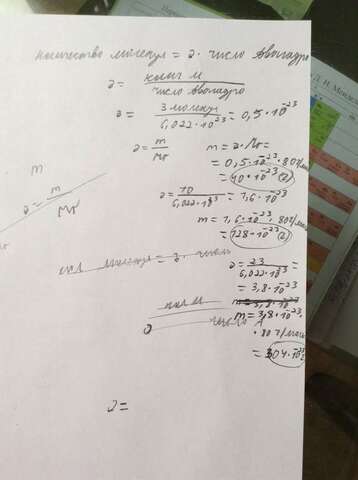 количество молекул = ν · число Авогадро
ν = колич м / число Авогадро
ν = 3 молекул / 6,022·10²³ = 0,5·10⁻²³
ν = m / Mr
m = ν · Mr =
= 0,5·10⁻²³·80 г/моль
= 40·10⁻²³ (г)
ν = 10 / 6,022·10²³ = 1,6·10⁻²³
m = 1,6·10⁻²³·80 г/моль
= 128·10⁻²³ (г)
m
ν = m / Mr
кол молекул = ν · число
ν = 23 / 6,022·10²³ =
= 3,8·10⁻²³
m = 3,8·10⁻²³
m = 3,8·10⁻²³·
· 80 г/моль
= 304·10⁻²³
кол м
число А
ν =
Д. И. Менде